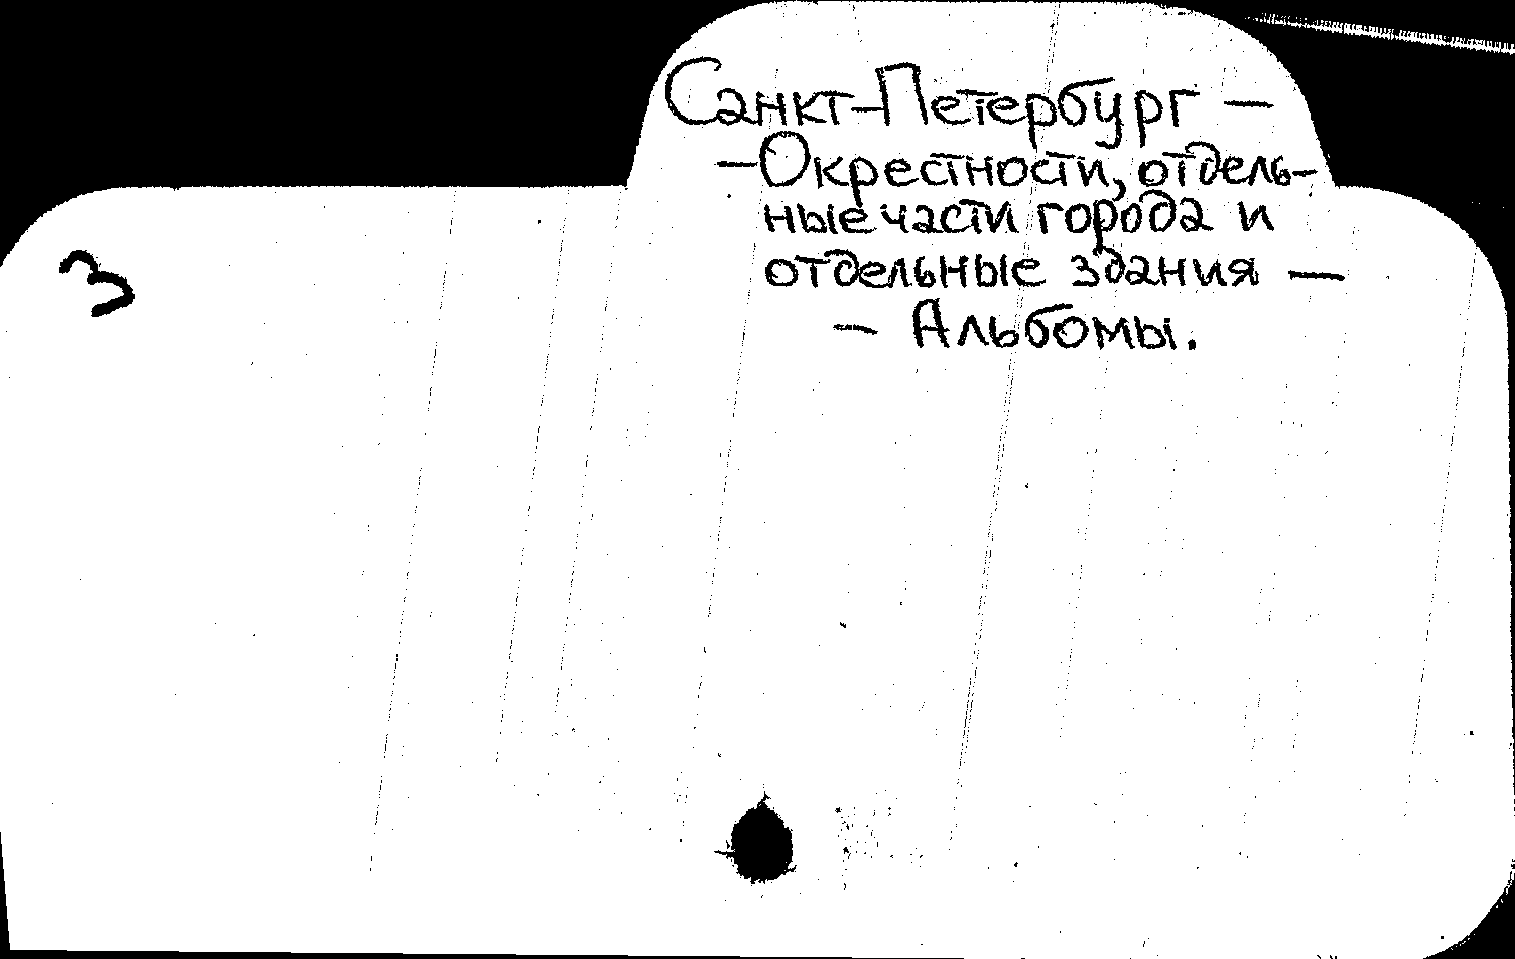 Санкт-Петербург —
— Окрестности, отдель-
ные части города и
отдельные здания —
— Альбомы.
3